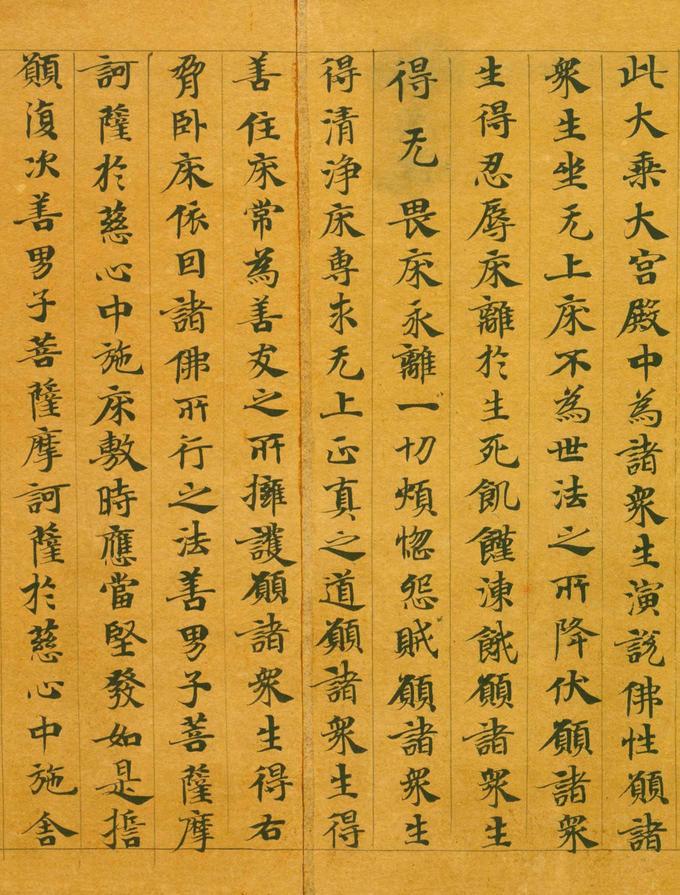 此大乗大宫殿中為諸衆生演說佛性願諸
衆生坐无上床不為世法之所降伏願諸衆
生得忍辱床離於生死飢饉凍餓願諸衆生
得无畏床永離一切煩惚怨賊願諸衆生
得清浄床專求无上正真之道願諸衆生得
善住床常為善友之所擁護願諸衆生得右
脅卧床依回諸佛所行之法善男子菩薩摩
訶薩於慈心中施床敷時應當堅發如是擔
願復次善男子菩薩摩訶薩於慈心中施舍